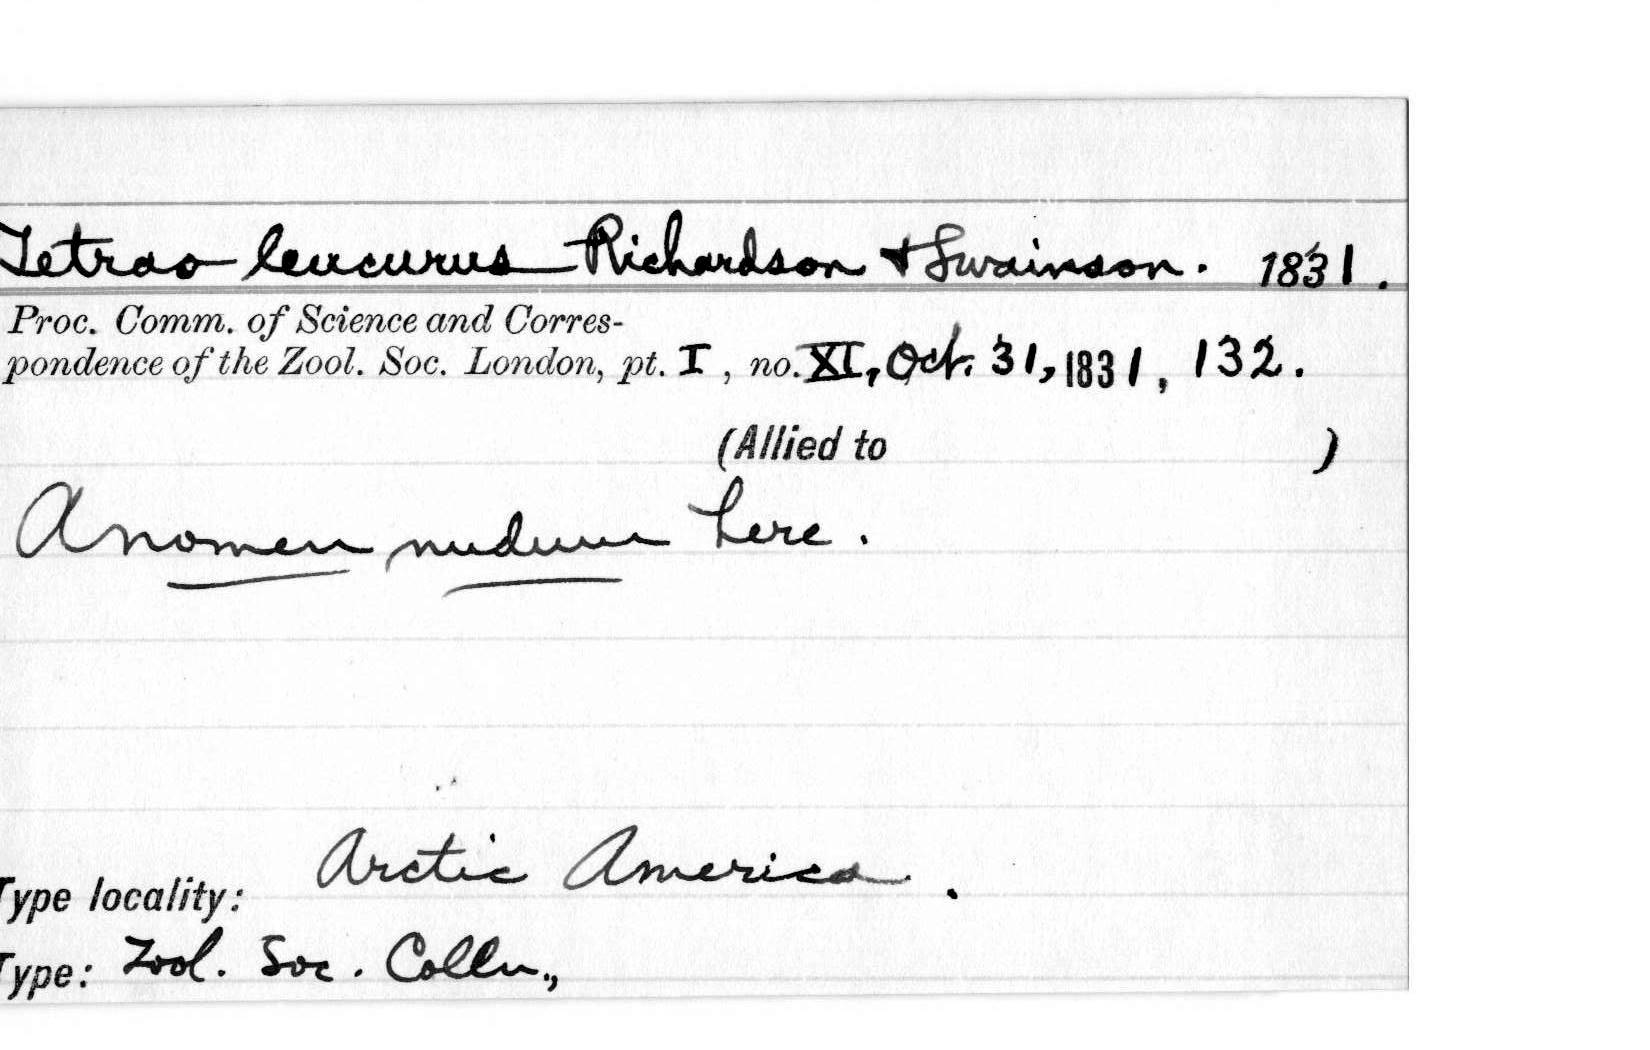 Tetrao leucurus Richardson & Swainson. 1831.
Proc. Comm. of Science and Corres-
pondence of the Zool. Soc. London, pt. I, no. XI, Oct. 31, 1831, 132.
(Allied to )
A nomen nudum here.
Arctic America.
Type locality:
Type: Zool. Soc. Colln.,